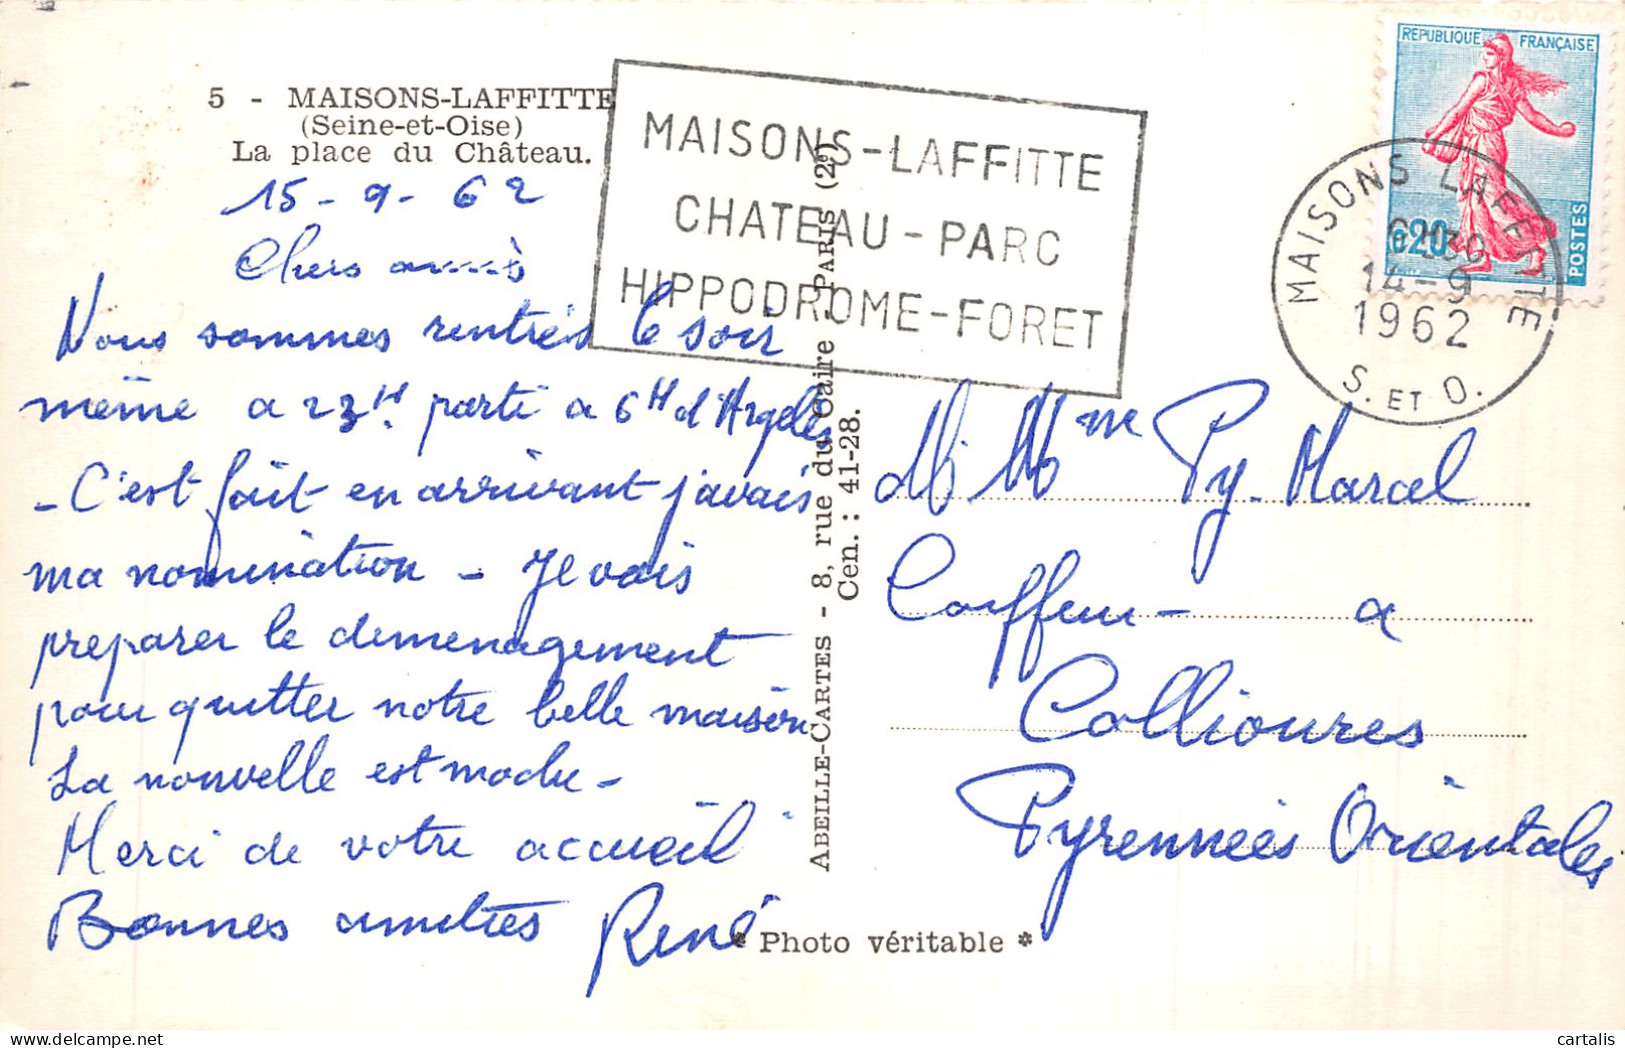 5 - MAISONS-LAFFITTE
(Seine-et-Oise)
La place du Château.
15-9-62
Chers amis
Nous sommes rentrés le soir
même a 23H. parti a 6H d'Argelès
- C'est fait en arrivant j'avais
ma nomination - Je vais
préparer le demenagement
pour quitter notre belle maison
La nouvelle est moche -
Merci de votre accueil
Bonnes amitiés René
MAISONS-LAFFITTE
CHATEAU-PARC
HIPPODROME-FORET
ABEILLE-CARTES - 8, rue du Caire - PARIS (2e)
Cen. : 41-28.
* Photo véritable *
REPUBLIQUE FRANÇAISE
0,20
POSTES
MAISONS LAFFITTE
6H30
14-9
1962
S. ET O.
M Mme Py. Marcel
Coiffeur - a
Collioures
Pyrennées Orientales
cartalis
www.delcampe.net